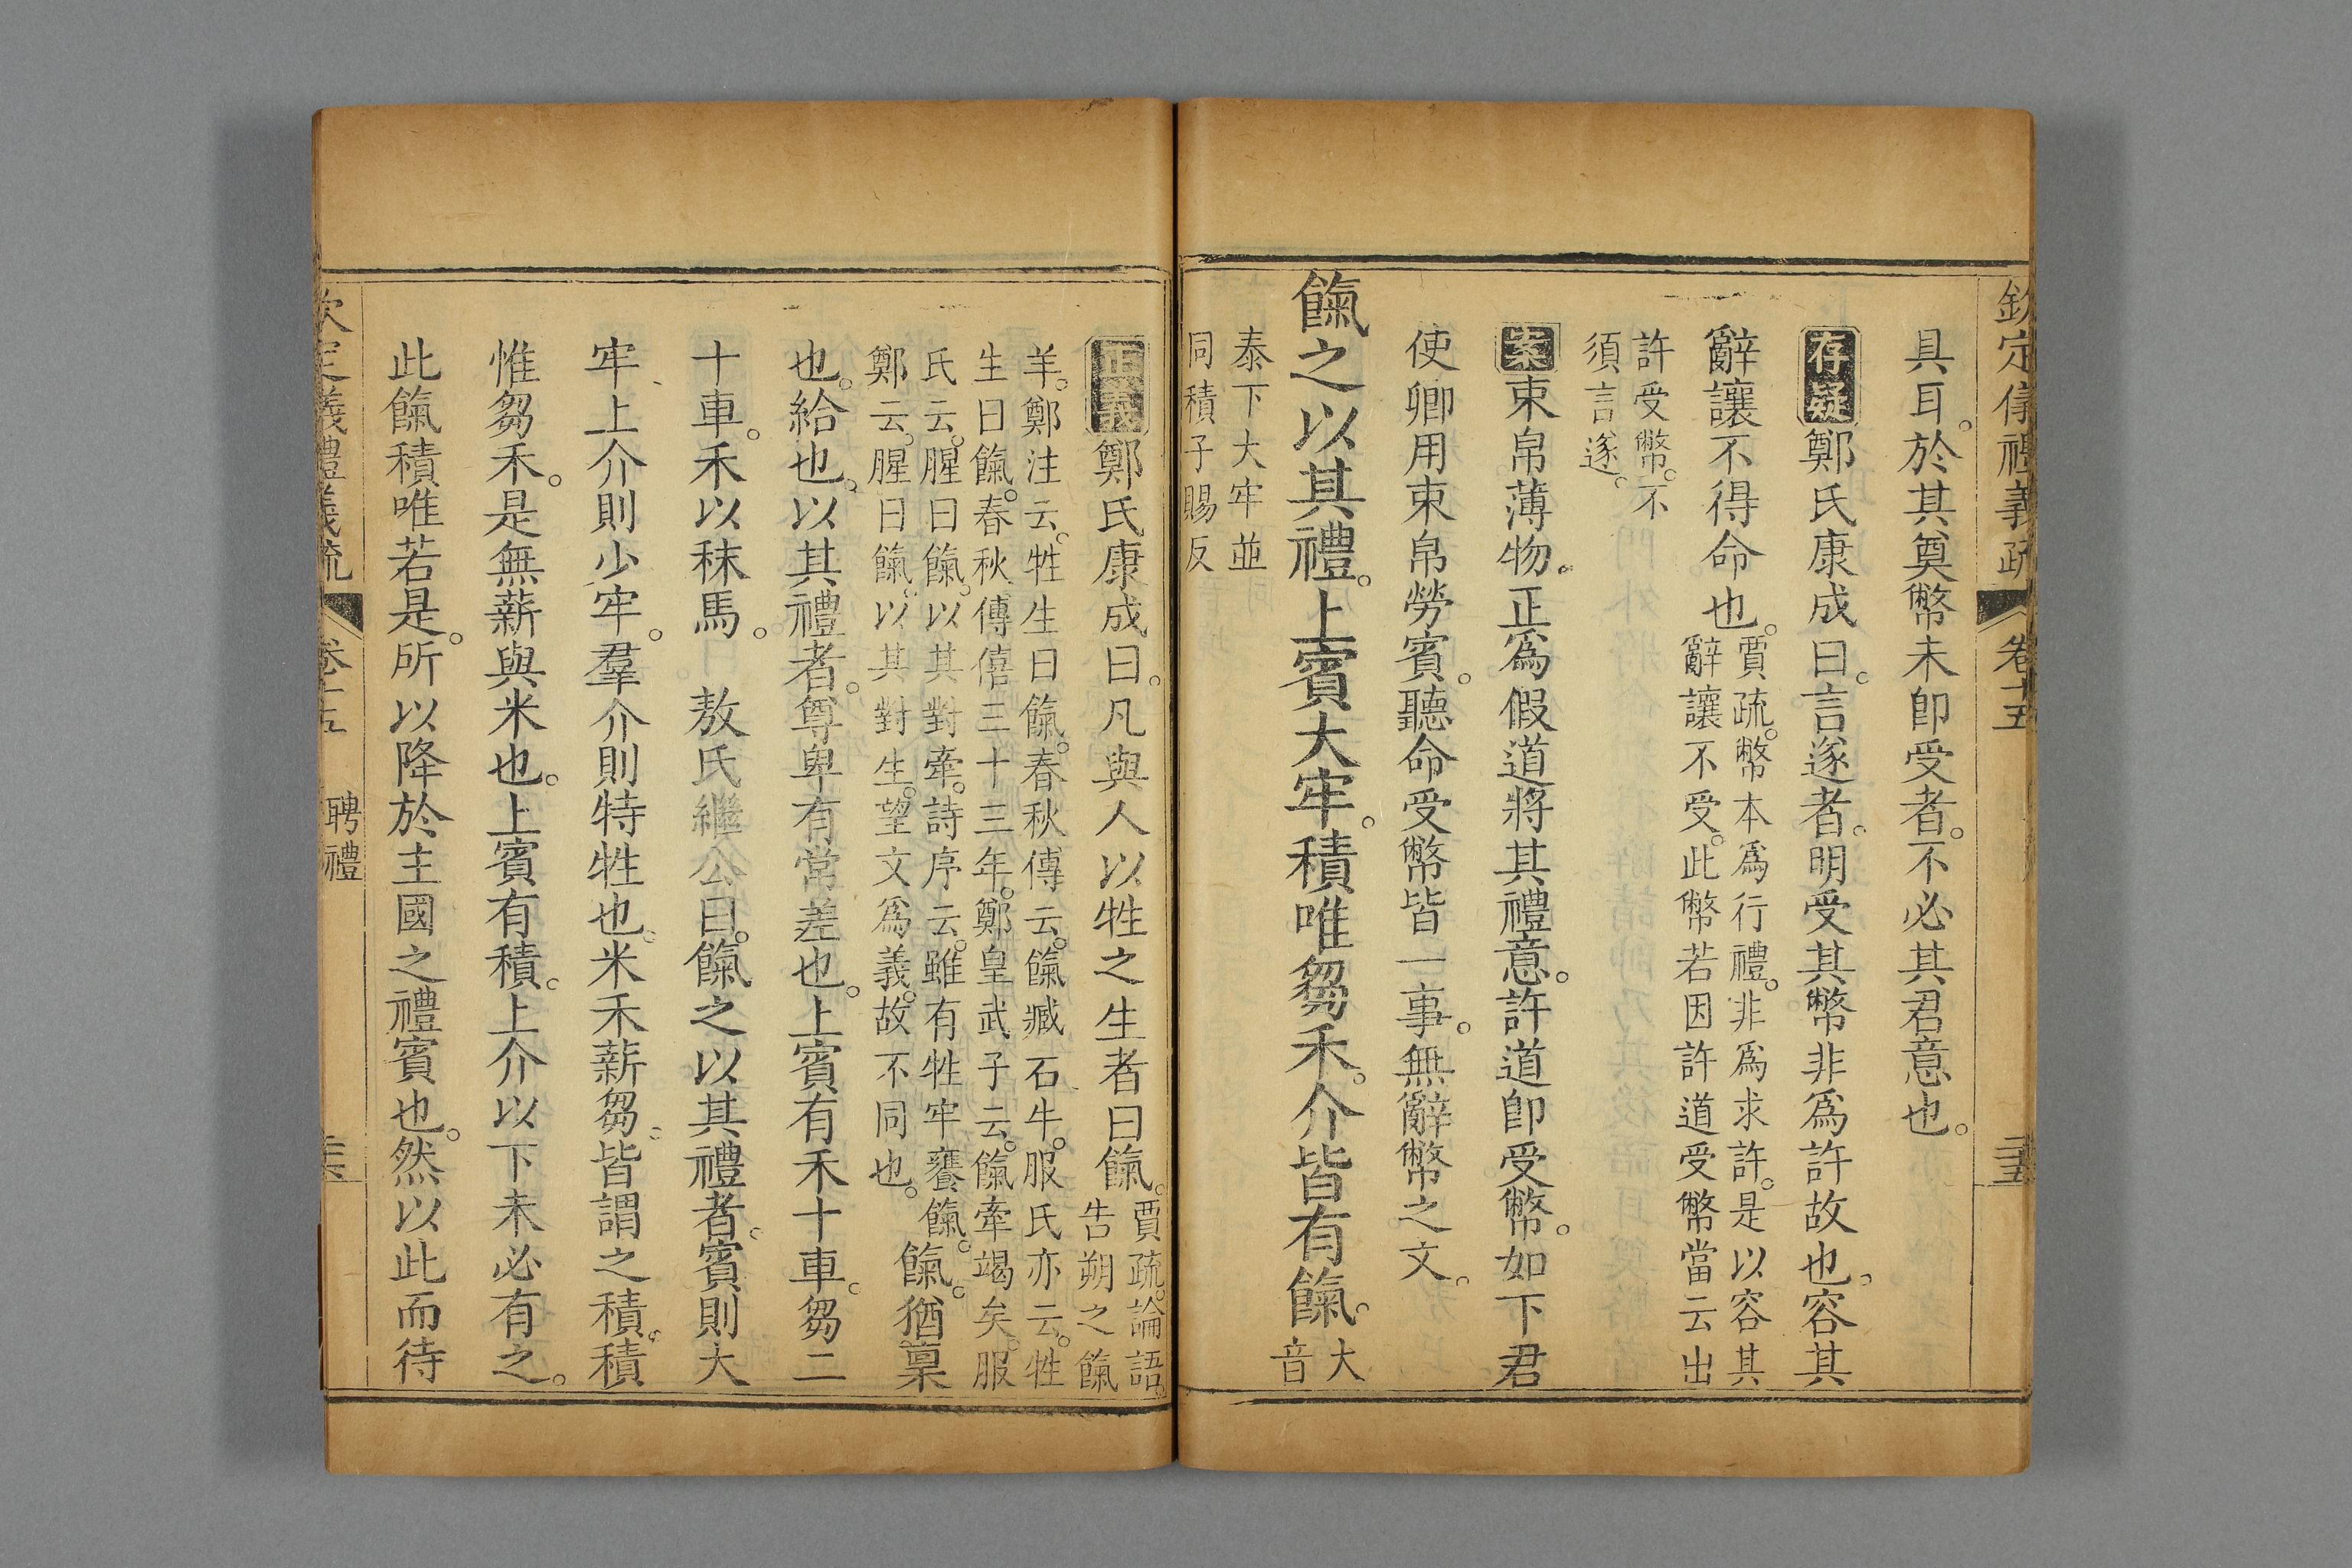 欽定儀禮義疏 卷十五 二十五
具耳。於其奠幣未卽受者。不必其君意也。
存疑鄭氏康成曰。言遂者。明受其幣非爲許故也。容其
辭讓不得命也。賈疏。幣本爲行禮。非爲求許。是以容其
辭讓不受。此幣若因許道受幣當云出
許受幣。不
須言遂。
案束帛薄物。正爲假道將其禮意。許道卽受幣。如下君
使卿用束帛勞賓。聽命受幣皆一事。無辭幣之文。
餼之以其禮。上賓大牢。積唯芻禾。介皆有餼。大
音
泰下大牢並
同積子賜反
正義鄭氏康成曰。凡與人以牲之生者曰餼。賈疏。論語。
告朔之餼
羊。鄭注云。牲生曰餼。春秋傳云。餼臧石牛。服氏亦云。牲
生曰餼。春秋傳僖三十三年。鄭皇武子云。餼牽竭矣。服
氏云。腥曰餼。以其對牽。詩序云。雖有牲牢饔餼。
鄭云。腥曰餼。以其對生。望文爲義。故不同也。
餼。猶稟
也。給也。以其禮者。尊卑有常差也。上賓有禾十車。芻二
十車。禾以秣馬。 敖氏繼公曰。餼之以其禮者。賓則大
牢。上介則少牢。羣介則特牲也。米禾薪芻。皆謂之積。積
惟芻禾。是無薪與米也。上賓有積。上介以下未必有之。
此餼積唯若是。所以降於主國之禮賓也。然以此而待
欽定儀禮義疏 卷十五 聘禮